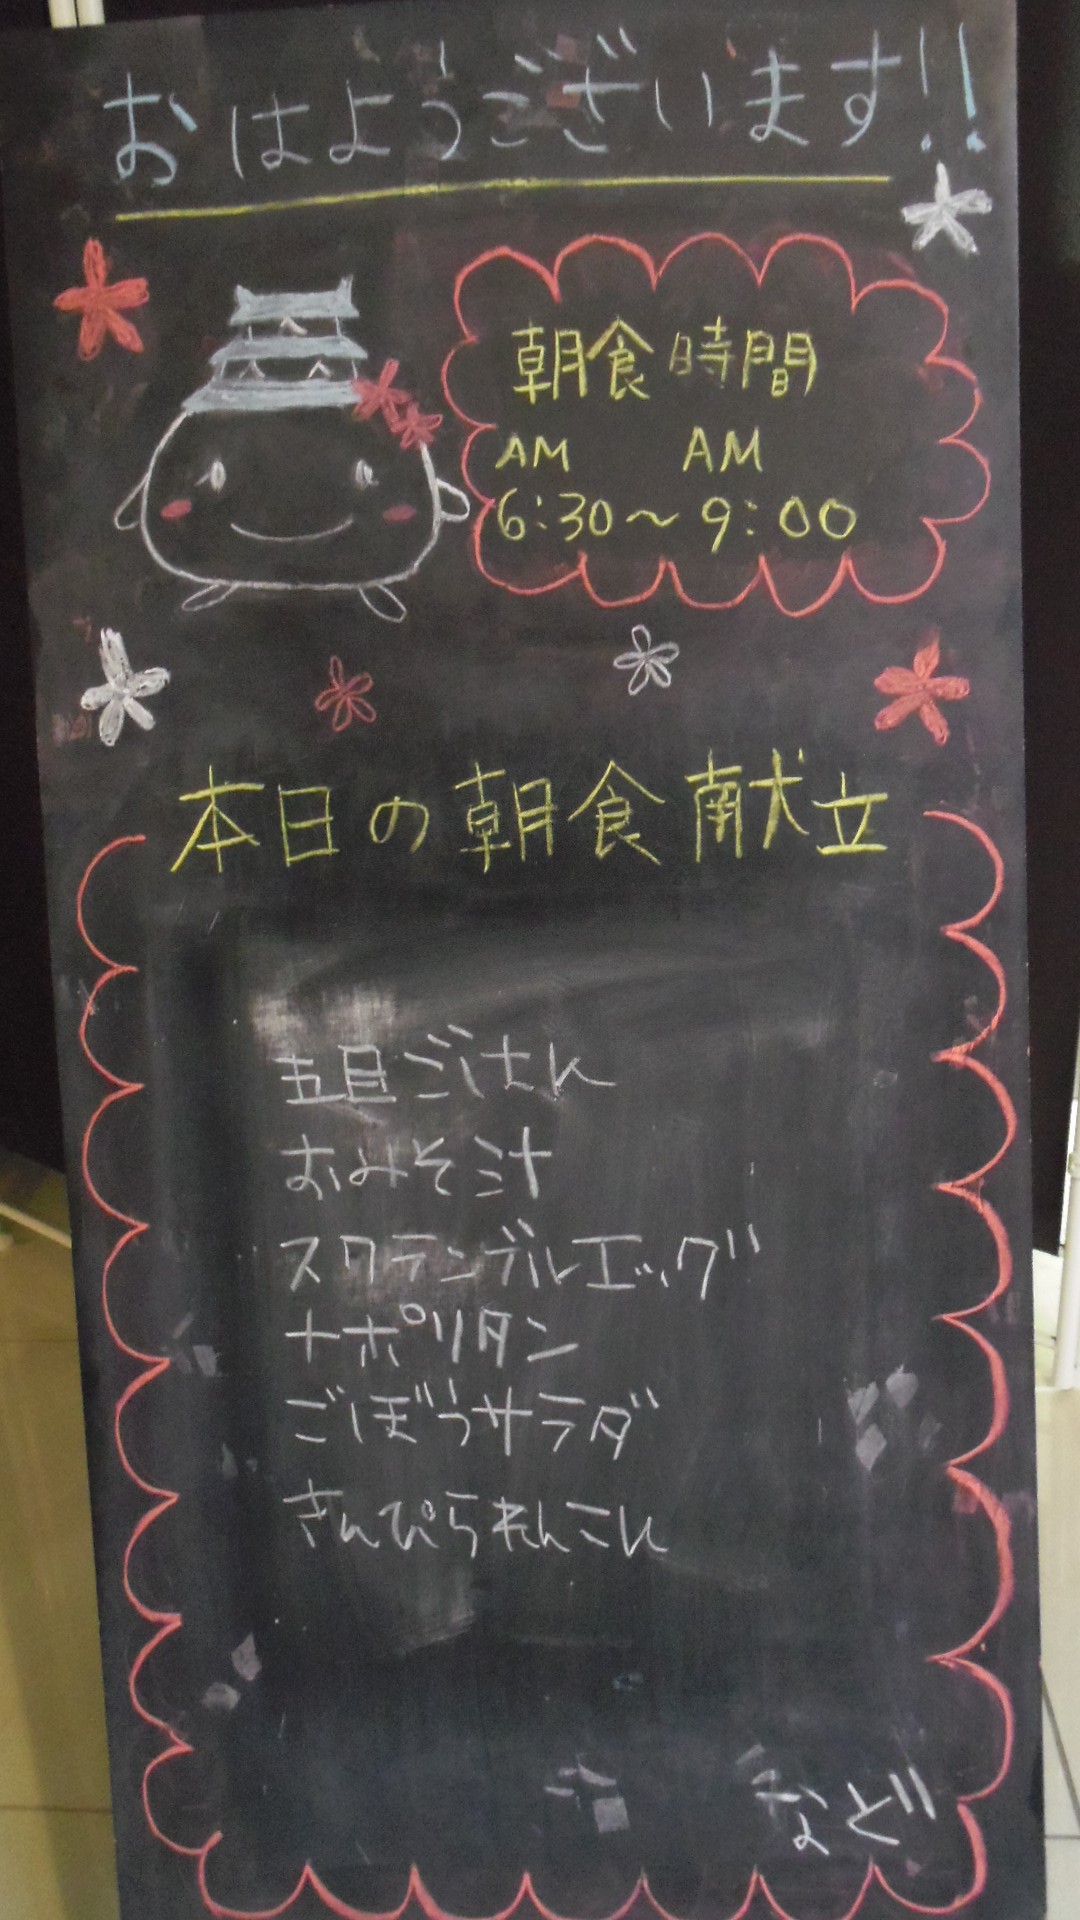 おはようございます!!
朝食時間
AM AM
6:30~9:00
本日の朝食献立
五目ごはん
おみそ汁
スクランブルエッグ
ナポリタン
ごぼうサラダ
きんぴられんこん
など